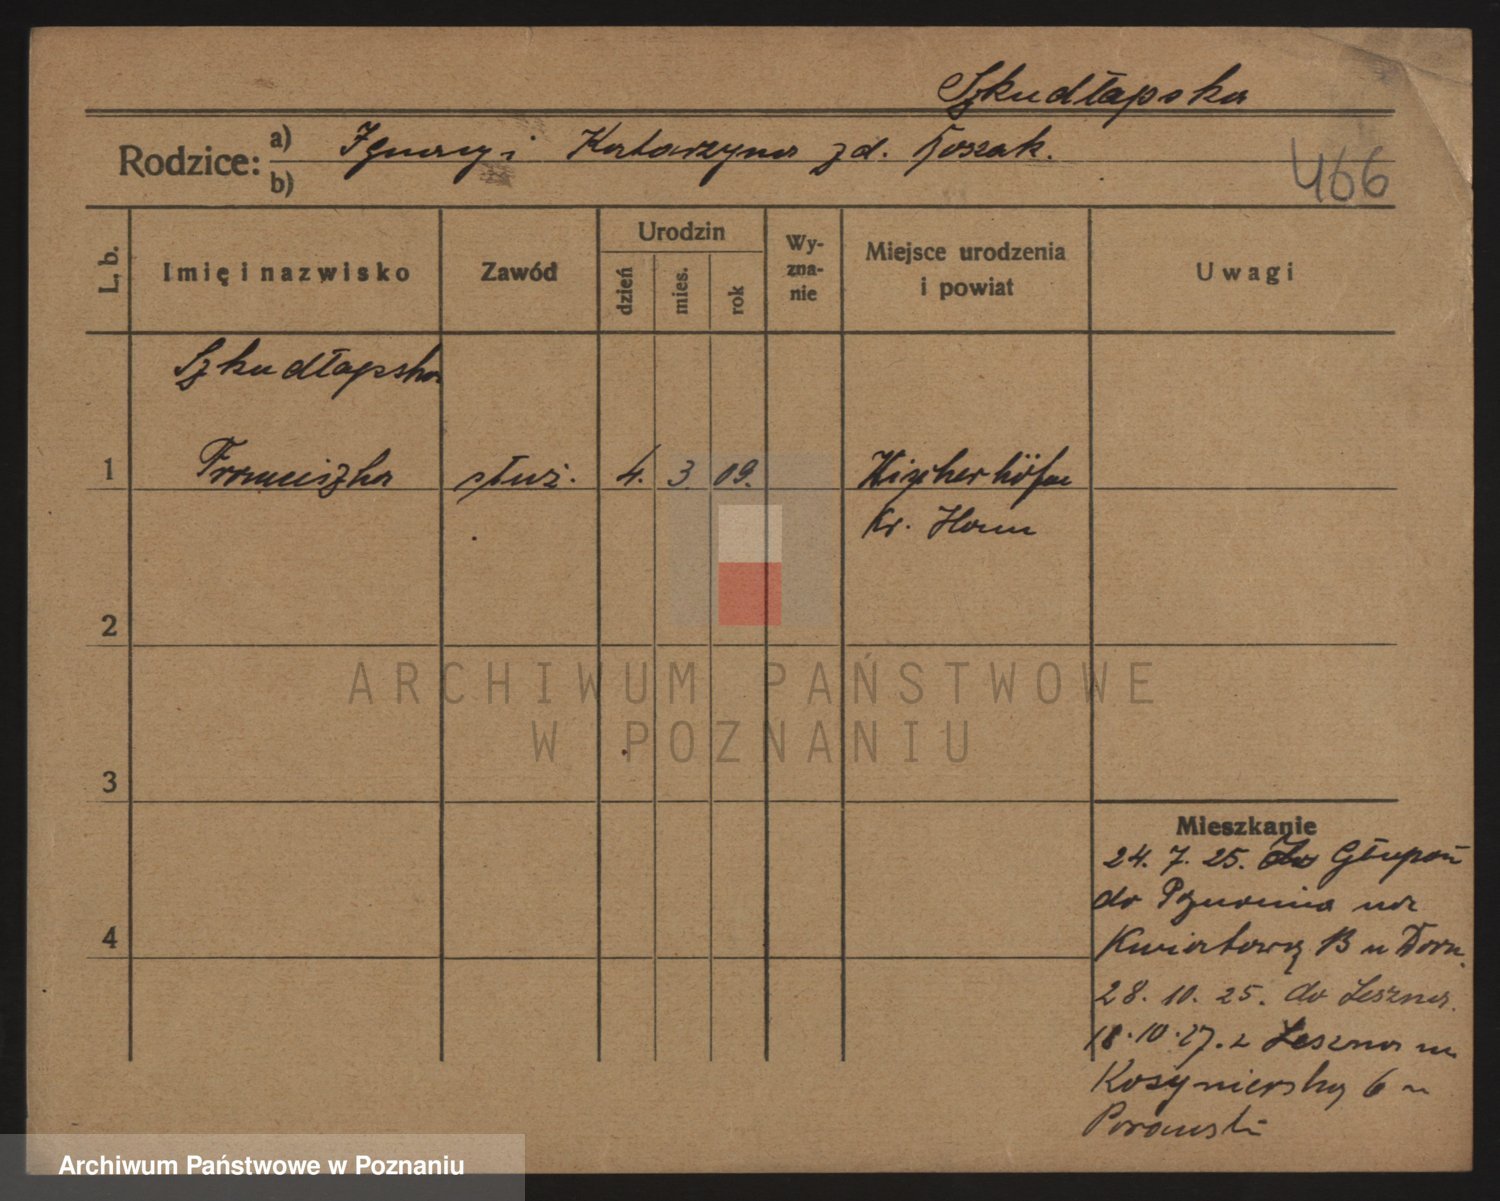 Szkudłapska
Rodzice: a) Ignacy i Katarzyna zd. Toszak.
b)
466
L. b. Imię i nazwisko Zawód Urodzin dzień mies. rok Wy-zna-nie Miejsce urodzenia i powiat Uwagi
Szkudłapska
1 Franciszka służ. 4. 3. 09.
Kr. Hamm
2
3
4
Mieszkanie
24. 7. 25. Głupoń
do Poznania na
Kwiatową 13 u Dorn.
28. 10. 25. do Leszna.
18. 10. 27. z Leszna na
6 u
ARCHIWUM PAŃSTWOWE
W POZNANIU
Archiwum Państwowe w Poznaniu